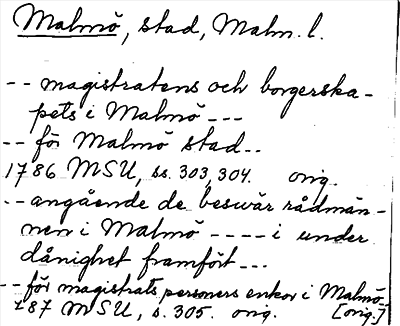 Malmö, stad, Malm. l.
-- magistratens och borgerska-
pets i Malmö ---
-- för Malmö stad..
1786 MSU, ss. 303, 304. orig.
-- angående de beswär rådmän-
nen i Malmö ---- i under
dånighet framfört ---
-- för magistrats personers enkor i Malmö
787 MSU, s. 305. orig. [orig.]